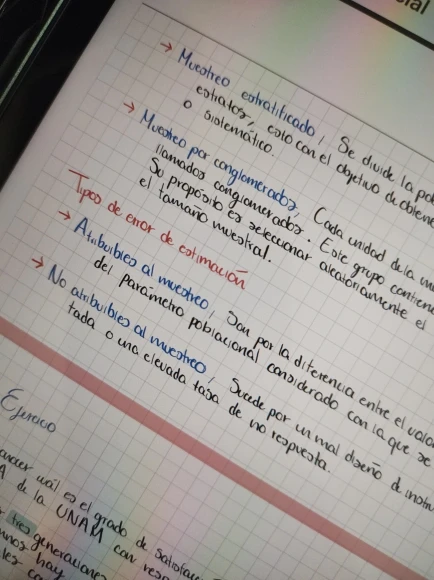 ial
→ Muestreo estratificado, Se divide la pob
estratos, esto con el objetivo de obtene
o sistemático.
→ Muestreo por conglomerados, Cada unidad de la mu
llamados conglomerados. Este grupo contiene
Su propósito es seleccionar aleatoriamente el
el tamaño muestral.
Tipos de error de estimación
→ Atribuibles al muestreo, Son por la diferencia entre el valor
del parámetro poblacional considerado con la que se
→ No atribuibles al muestreo, Sucede por un mal diseño de instru
tada o una elevada tasa de no respuesta.
Ejercicio
cuál es el grado de satisfac
A de la UNAM con resp
tres generaciones
hay